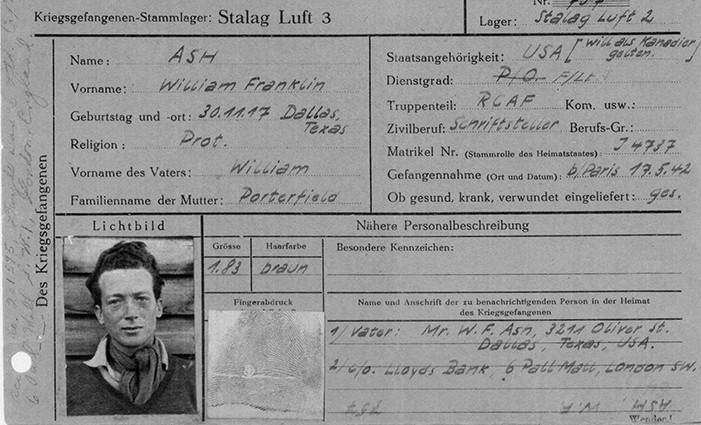 Kriegsgefangenen-Stammlager: Stalag Luft 3
Nr.
Lager: Stalag Luft 2
Des Kriegsgefangenen
Name: ASH
Vorname: William Franklin
Geburtstag und -ort: 30.11.17 Dallas,
Texas
Religion: Prot.
Vorname des Vaters: William
Familienname der Mutter: Porterfield
Staatsangehörigkeit: USA [will als Kanadier
gelten.]
Dienstgrad: P/O. F/Lt
Truppenteil: RCAF Kom. usw.:
Zivilberuf: Schriftsteller Berufs-Gr.:
Matrikel Nr. (Stammrolle des Heimatstaates): J 4737
Gefangennahme (Ort und Datum): b/Paris 17.5.42
Ob gesund, krank, verwundet eingeliefert: ges.
Lichtbild
Nähere Personalbeschreibung
Grösse
1.83
Haarfarbe
braun
Besondere Kennzeichen:
Fingerabdruck
Name und Anschrift der zu benachrichtigenden Person in der Heimat
des Kriegsgefangenen
1/ Vater: Mr. W. F. Ash, 3211 Oliver st.
Dallas, Texas, USA.
2/ c/o. Lloyds Bank, 6 Pall Mall, London SW.
Wenden!